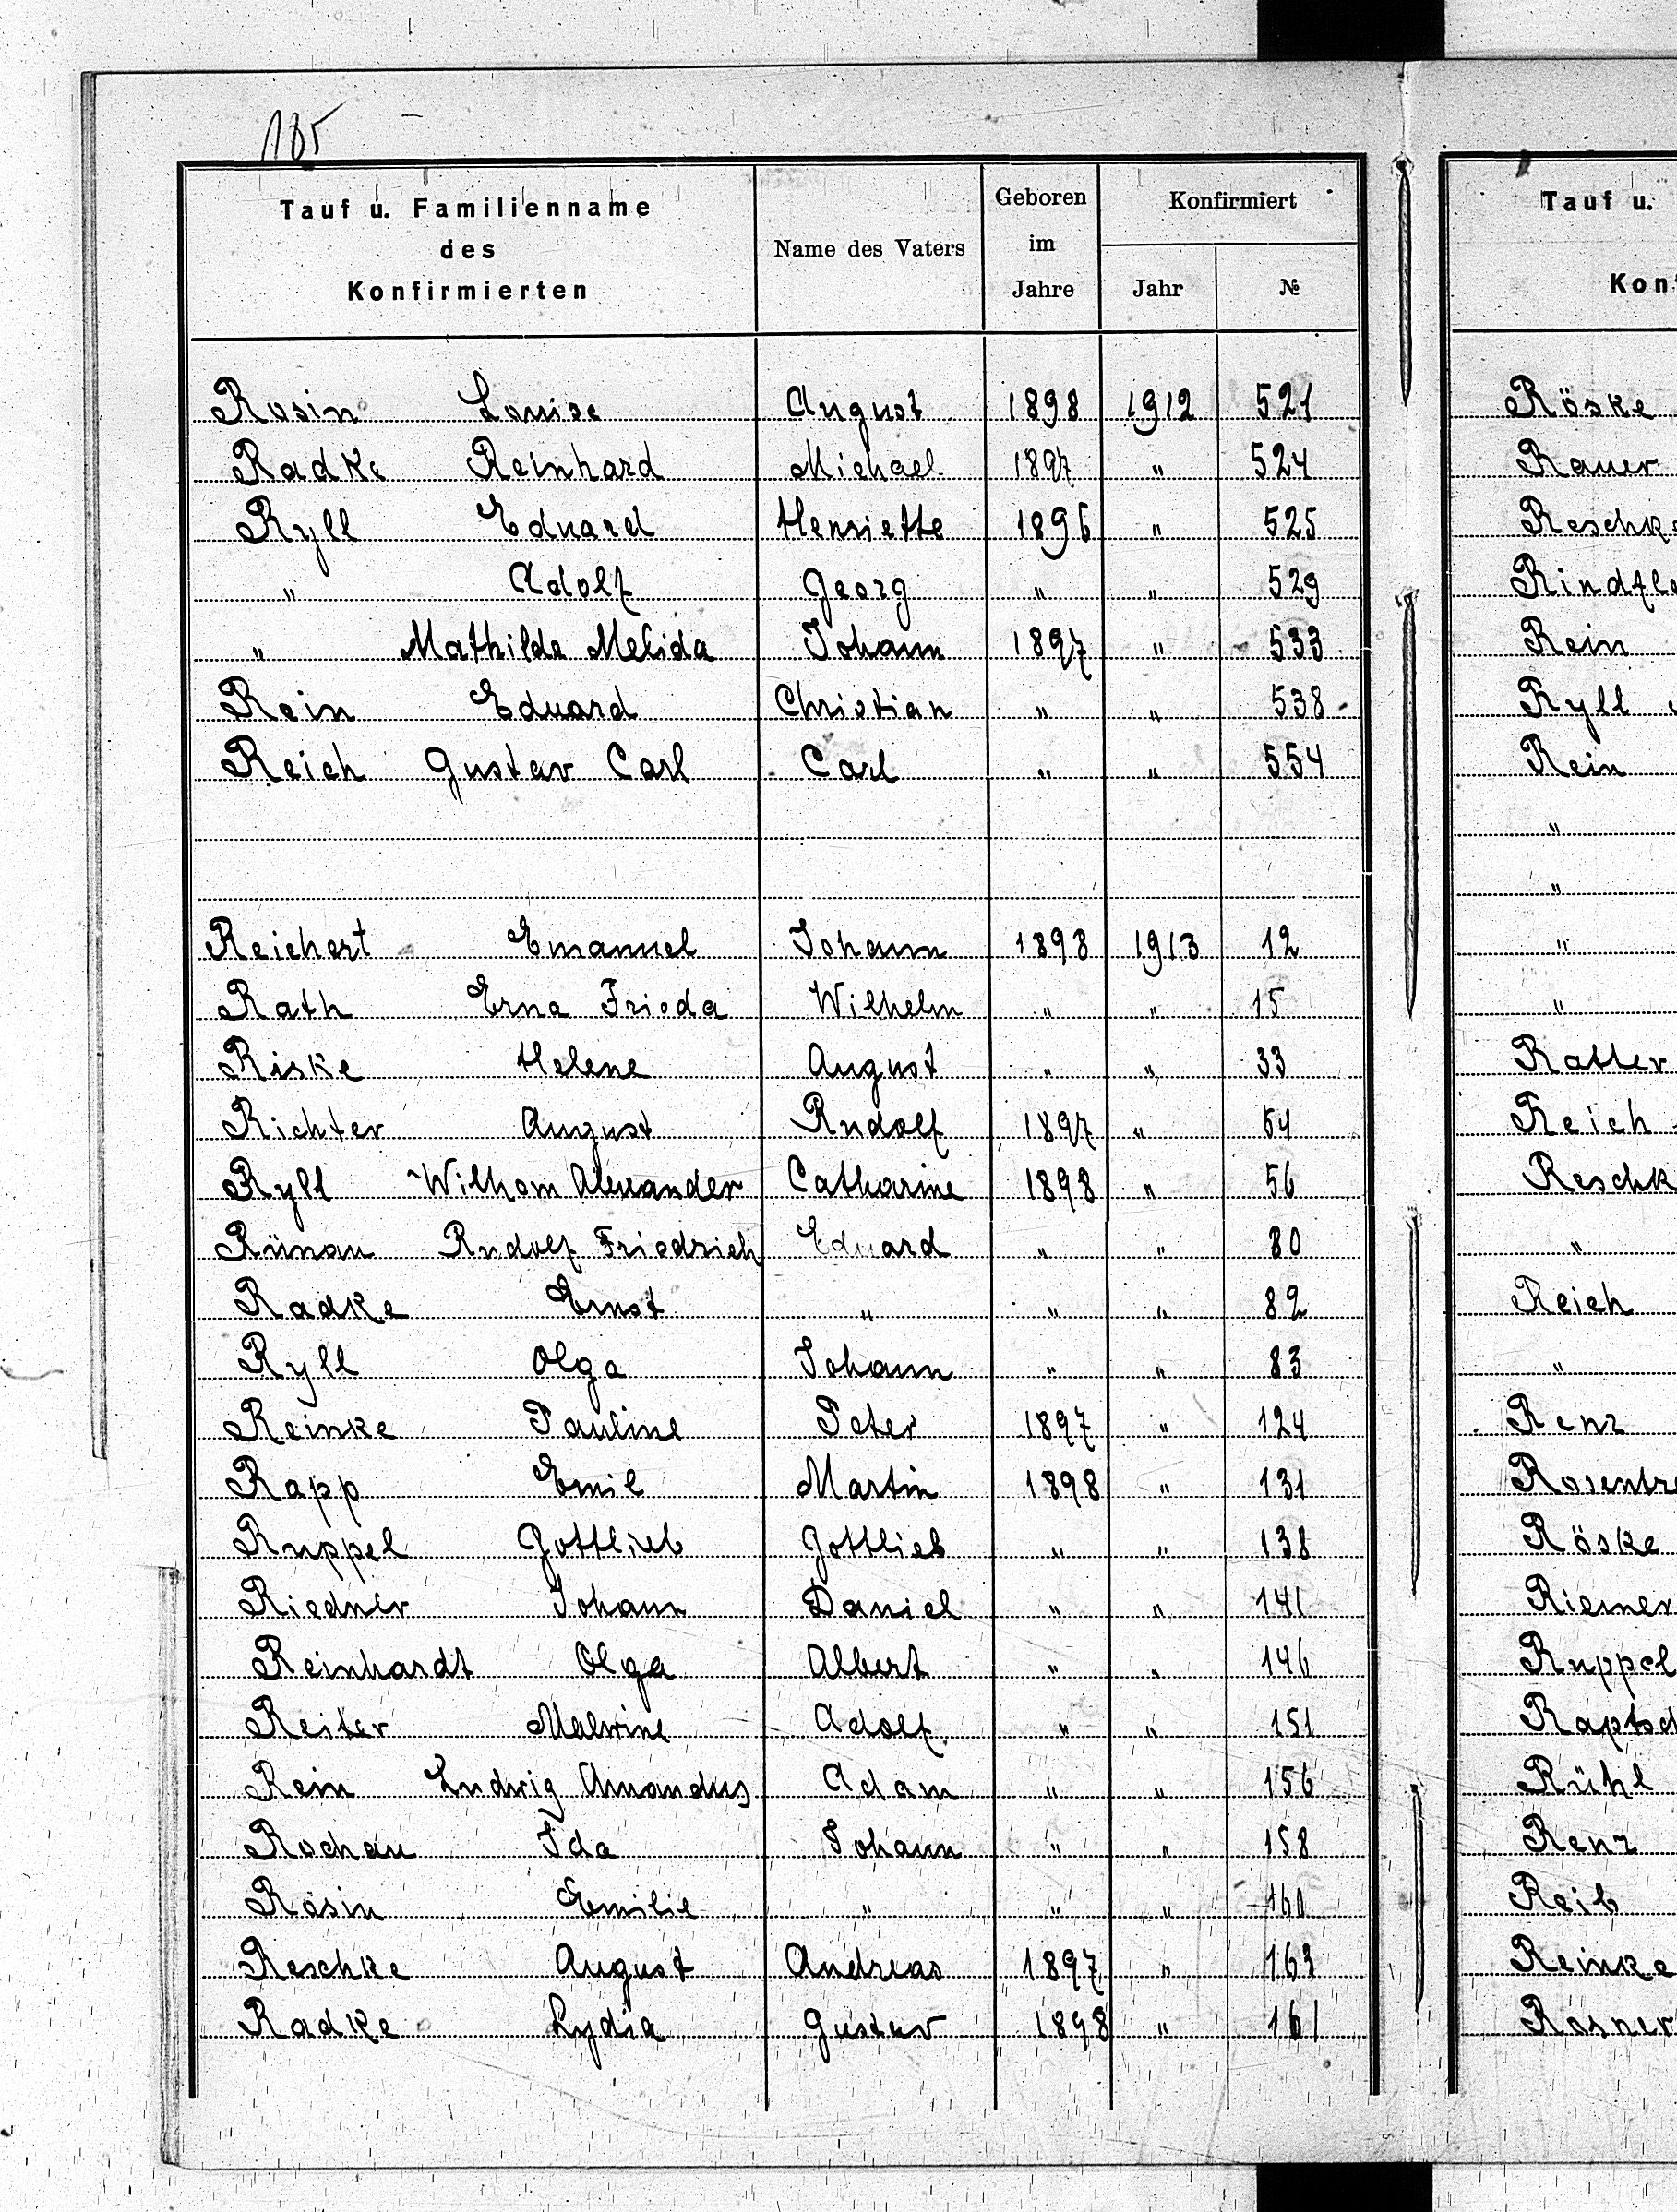 185
Tauf u. Familienname des Konfirmierten Name des Vaters Geboren im Jahre Konfirmiert Jahr №
Rosin Louise August 1898 1912 521
Radke Reinhard Michael 1897 " 524
Ryll Eduard Henriette 1896 " 525
" Adolf Georg " " 529
" Mathilde Melida Johann 1897 " 533
Rein Eduard Christian " " 538
Reich Gustav Carl Carl " " 554
Reichert Emanuel Johann 1898 1913 12
Rath Erna Frieda Wilhelm " " 15
Riske Helene August " " 33
Richter August Rudolf 1897 " 54
Ryll Wilhom Alexander Catharine 1898 " 56
Rünau Rudolf Friedrich Eduard " " 80
Radke Ernst " " " 82
Ryll Olga Johann " " 83
Reinke Pauline Peter 1897 " 124
Rapp Emil Martin 1898 " 131
Ruppel Gottlieb Gottlieb " " 138
Riedner Johann Daniel " " 141
Reinhardt Olga Albert " " 146
Reiter Malwine Adolf " " 151
Rein Ludwig Amandus Adam " " 156
Rochau Ida Johann " " 158
Rosin Emilie " " " 160
Reschke August Andreas 1897 " 163
Radke Lydia Gustav 1898 " 161
Tauf u.
Kon
Röske
Rauer
Reschke
Rindfle
Rein
Ryll
Rein
"
"
"
"
Ratler
Reich
Reschk
"
Reich
"
Renz
Rosentre
Röske
Riemer
Ruppel
Raptsch
Rühl
Renz
Reib
Reinke
Rosner